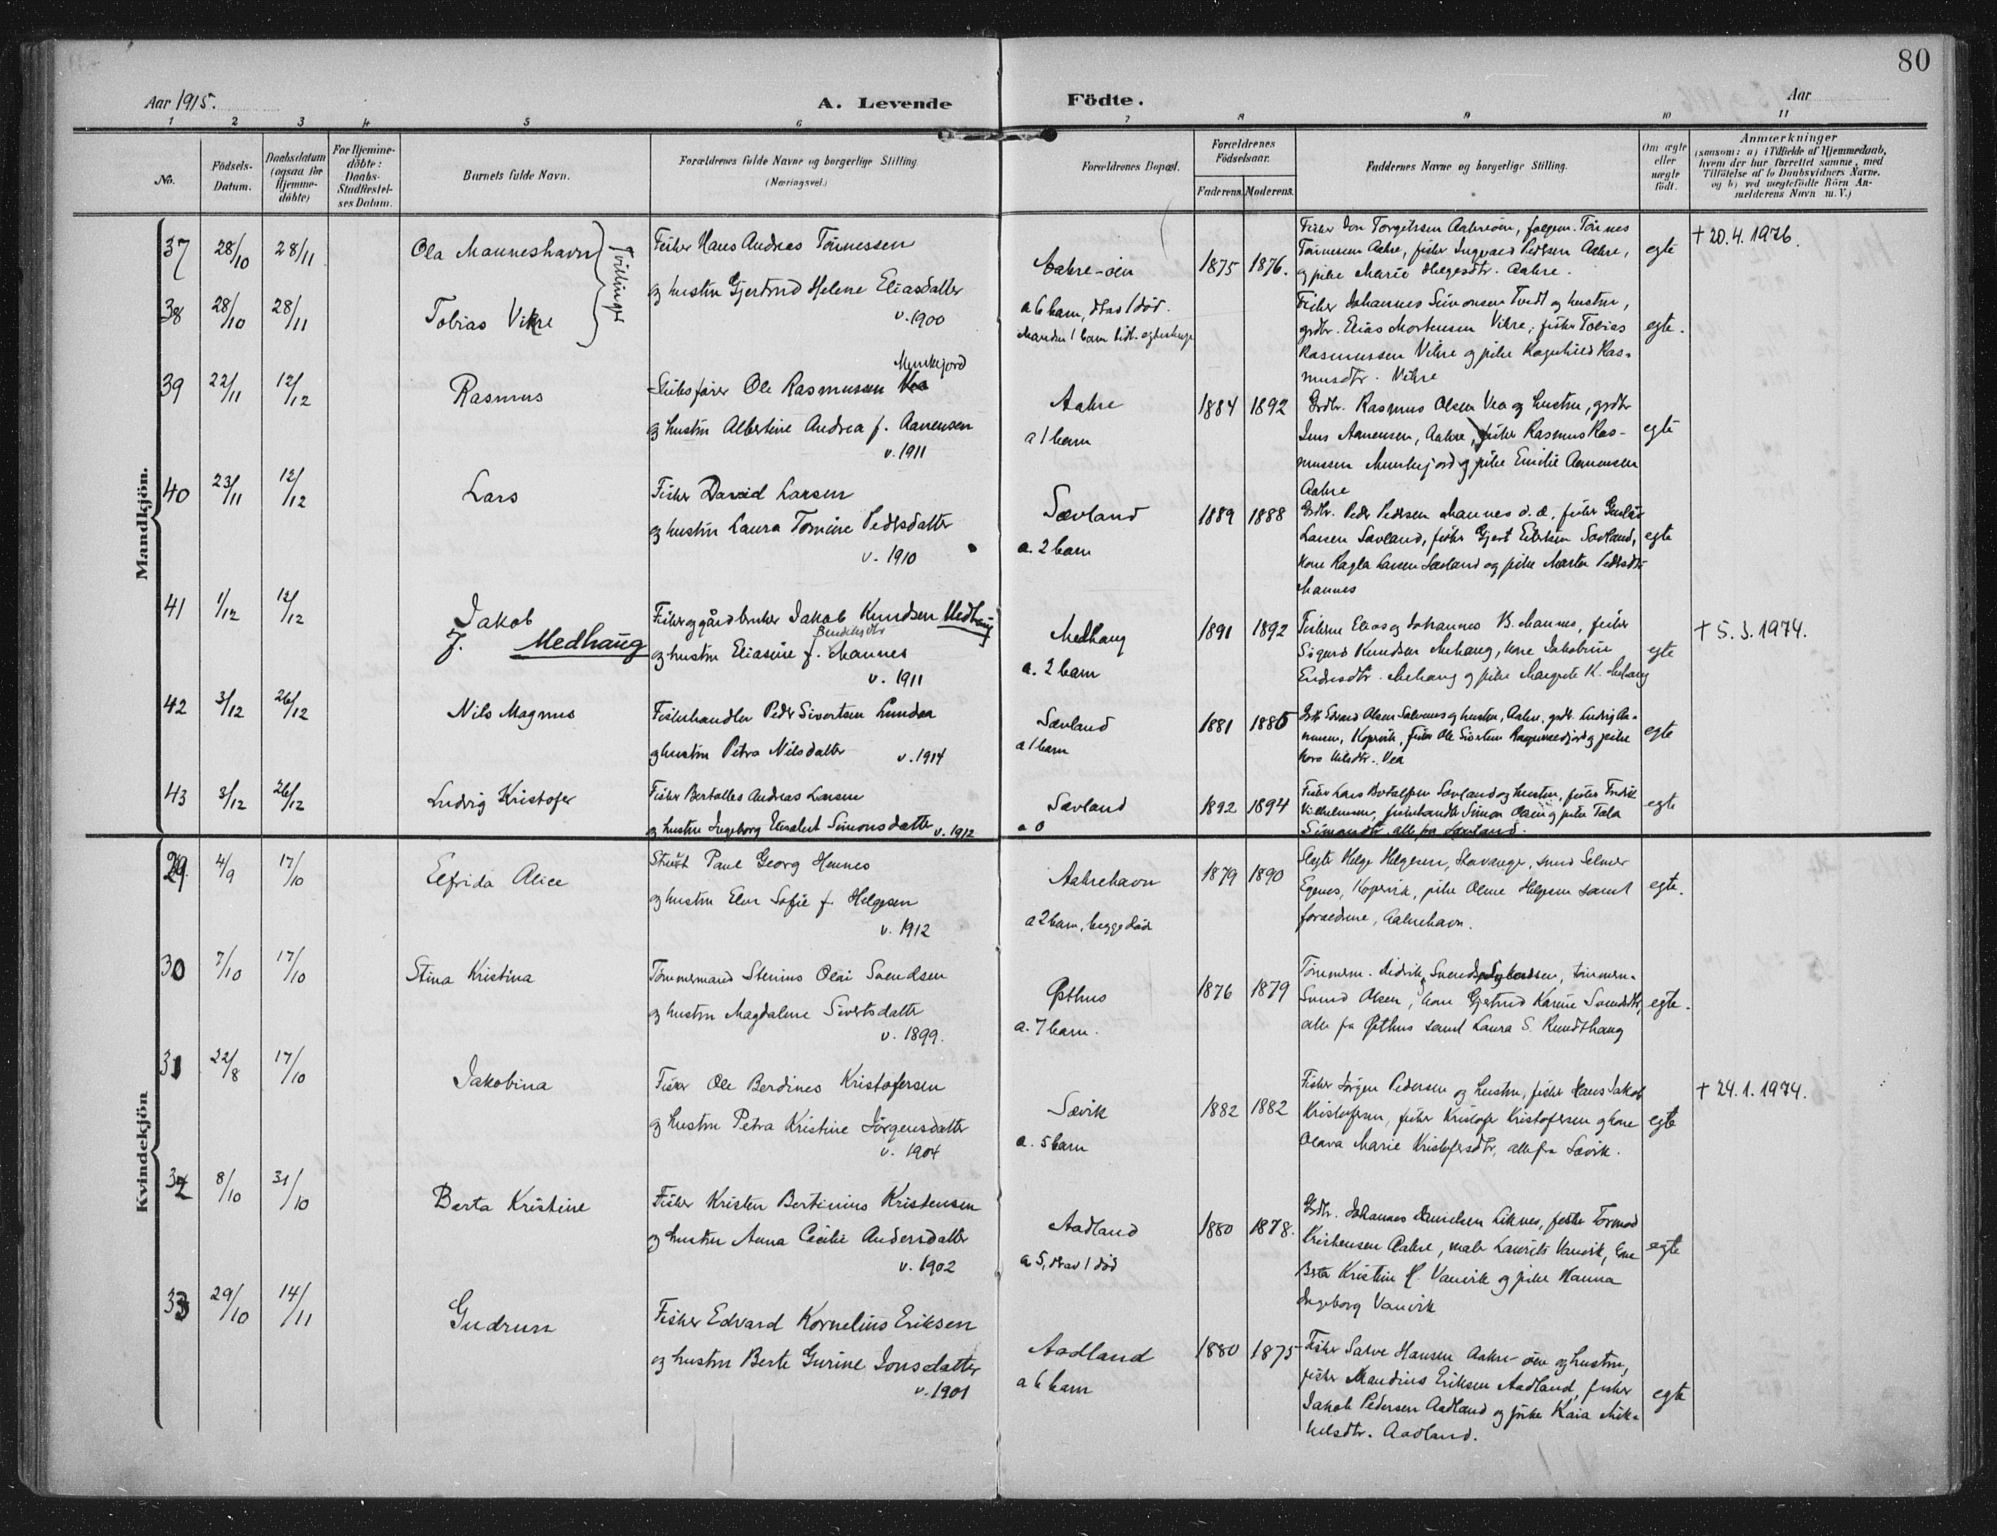 80
Aar 1915.
A. Levende Födte.
Aar
1 2 3 4 5 6 7 8 9 10 11
No.
Födsels-Datum.
Daabsdatum (ogsaa for Hjemme-döbte)
For Hjemme-döbte: Daabs-Stadfæstel-ses Datum.
Barnets fulde Navn.
Forældrenes fulde Navne og borgerlige Stilling.
(Næringsvei.)
Forældrenes Bopæl.
Forældrenes Födselsaar.
Faderens. Moderens.
Faddernes Navne og borgerlige Stilling.
Om ægte eller uægte födt.
Anmærkninger
(saasom: a) i Tilfælde af Hjemmedaab, hvem der har forrettet samme, med Tilföielse af to Daabsvidners Navne, og b) ved uægtefödte Börn An-melderens Navn m. V.)
Mandkjön.
37 28/10 28/11 Ola Manneshavn
Tvillinger
Fisker Hans Andreas Tönnessen
og hustru Gjertrud Helene Eliasdatter
v. 1900
Aakre-öen
1875 1876.
Fisker Jon Torgersen Aakreöen, Tönnes
Tönnessen Aakre, fisker Ingvald Pedersen Aakre,
og pike Marie Helgesdtr. Aakre.
egte
+ 20.4.1976.
38 28/10 28/11 Tobias Vikre
a 6 barn, drav 1 död.
Fisker Johannes Simonsen Tvedt og hustru,
grdbr. Elias Mortensen Vikre, fisker Tobias
Rasmussen Vikre og pike Ragnhild Ras-
musdtr. Vikre
egte.
39 22/11 12/12 Rasmus
Munkejord
Skibsförer Ole Rasmussen Vea
og hustru Albertine Andrea f. Aanensen
v. 1911
Aakre
a 1 barn
1884 1892
Grdbr. Rasmus Olsen Vea og hustru, grdbr
Jens Aanensen, Aakre, fisker Rasmus Ras-
mussen Munkejord og pike Emilie Aanensen
Aakre
egte
40 23/11 12/12 Lars
Fisker David Larsen
og hustru Laura Tomine Pedersdatter
v. 1910
Sævland
a. 2 barn
1889 1888
Grdbr. Peder Pedersen Mannes d. æ., fisker
Larsen Sævland, fisker Gjert Sævland,
kone Ragla Larsen Sævland og pike Marta Pedersdtr
Mannes
egte
41 1/12 12/12 Jakob
J. Medhaug
Fisker og gårdbruker Jakob Knudsen Medhaug
Bendiksdtr
og hustru Eliasine f. Mannes
v. 1911
Medhaug
a. 2 barn
1891 1892
Fiskerne Elias og Johannes B. Mannes, fisker
Sigurd Knudsen Mehaug, kone Jakobine
Endresdtr. Mehaug og pike Margrete K. Mehaug
egte
+ 5.3.1974.
42 3/12 26/12 Nils Magnus
Fiskehandler Peder Sivertsen Lunden
og hustru Petra Nilsdatter v. 1914
Sævland
a 1 barn
1881 1885
Grdbr Edvard Olsen Salvenes og hustru, Aakre, grdb. Ludvig Aa-
nensen, Kopervik, fisker Ole Sivertsen og pike
Nilsdtr. Vea
egte
43 3/12 26/12 Ludvig Kristofer
Fisker Bertalles Andreas Larsen
og hustru Ingeborg Elisabet Simonsdatter v. 1912
Sævland
a 0
1892 1894
Fisker Lars Botolfsen Sævland og hustru, fisker Fredrik
Vilhelmsen, fiskehandler Simon Olsen og pike Tala
Simonsdtr. alle fra Sævland.
egte
Kvindekjön
29 4/9 17/10 Elfrida Alice
Paul Georg Hennes
og hustru Elen Sofie f. Helgesen
v. 1912
Aakrehavn
a 2 barn, begge död
1879 1890
Helge Helgesen, Stavanger, smed Selmer
Egenes, Kopervik, pike Oline Helgesen samt
forældrene, Aakrehavn.
egte.
30 7/10 17/10 Stina Kristina
Tömmermand Stenius Olai Svendsen
og hustru Magdalene Sivertsdatter
v. 1899.
Østhus
a. 7 barn.
1876 1879
Tömmerm. Didrik Svendsen, tömmerm.
Svend Olsen, kone Gjertrud Karine Svendsdtr,
alle fra Østhus samt Laura S. Rundhaug
egte.
31 22/8 17/10 Jakobina
Fisker Ole Berdines Kristofersen
og hustru Petra Kristine Jörgensdatter
v. 1904
Sævik
a. 5 barn
1882 1882
Fisker Jörgen Pedersen og hustru, fisker Hans Jakob
Kristofersen, fisker Kristofer Kristofersen og kone
Olava Marie Kristofersdtr, alle fra Sævik.
egte
+ 24.1.1974.
32 8/10 31/10 Berta Kristine
Fisker Kristen Bertinius Kristensen
og hustru Anna Cecilie Andersdatter
v. 1902
Aadland
a 5, drav 1 död
1880 1878.
Grdbr. Johannes Danielsen Liknes, fisker Tormod
Kristensen Aakre, maler Laurits Vanvik, kone
Berta Kristine H. Vanvik og pike Hanna
Ingeborg Vanvik
egte
33 29/10 14/11 Gudrun
Fisker Edvard Kornelius Eriksen
og hustru Berte Gurine Jonsdatter
v. 1901
Aadland
a 6 barn
1880 1875
Fisker Salve Hansen Aakre-öen og hustru,
fisker Mandius Eriksen Aadland, fisker
Jakob Pedersen Aadland og pike Kaia Mik-
kelsdtr. Aadland.
egte